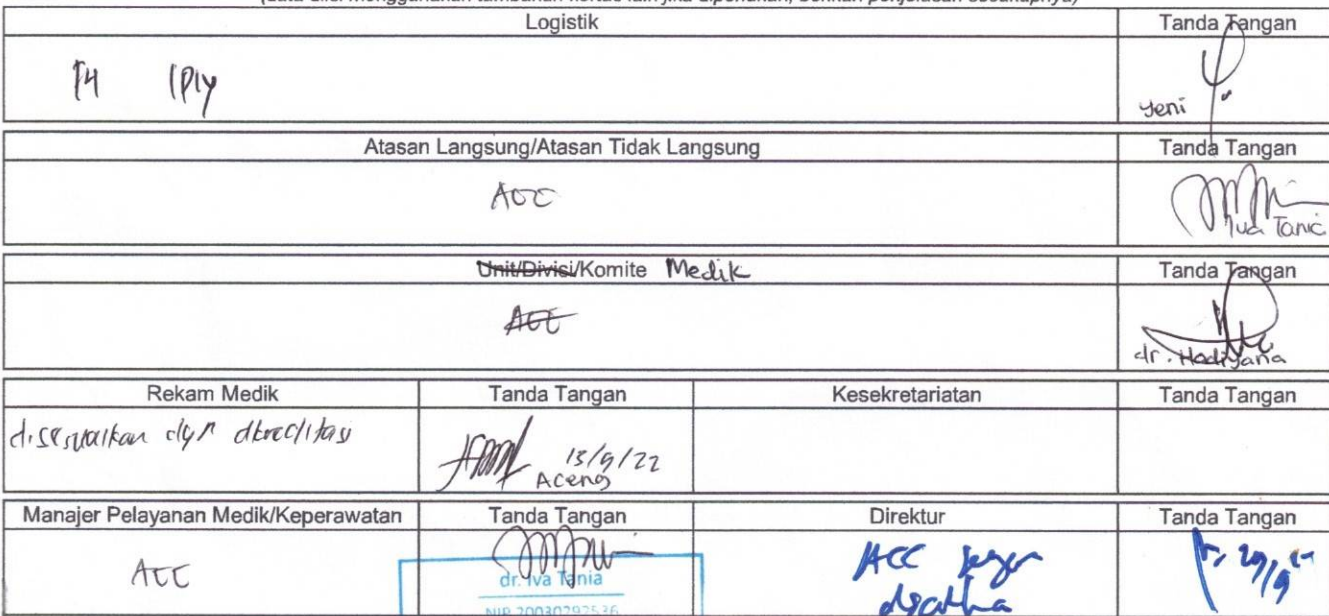 Logistik Tanda Tangan
F4 1Ply
Yeni
Atasan Langsung/Atasan Tidak Langsung Tanda Tangan
ACC
Iva Tania
Unit/Divisi/Komite Medik Tanda Tangan
ACC
dr. Hadiyana
Rekam Medik Tanda Tangan Kesekretariatan Tanda Tangan
disesuaikan dgn
13/9/22
Aceng
Manajer Pelayanan Medik/Keperawatan Tanda Tangan Direktur Tanda Tangan
ACC
dr. Iva Tania
NIP 20030292536
ACC segera
29/9